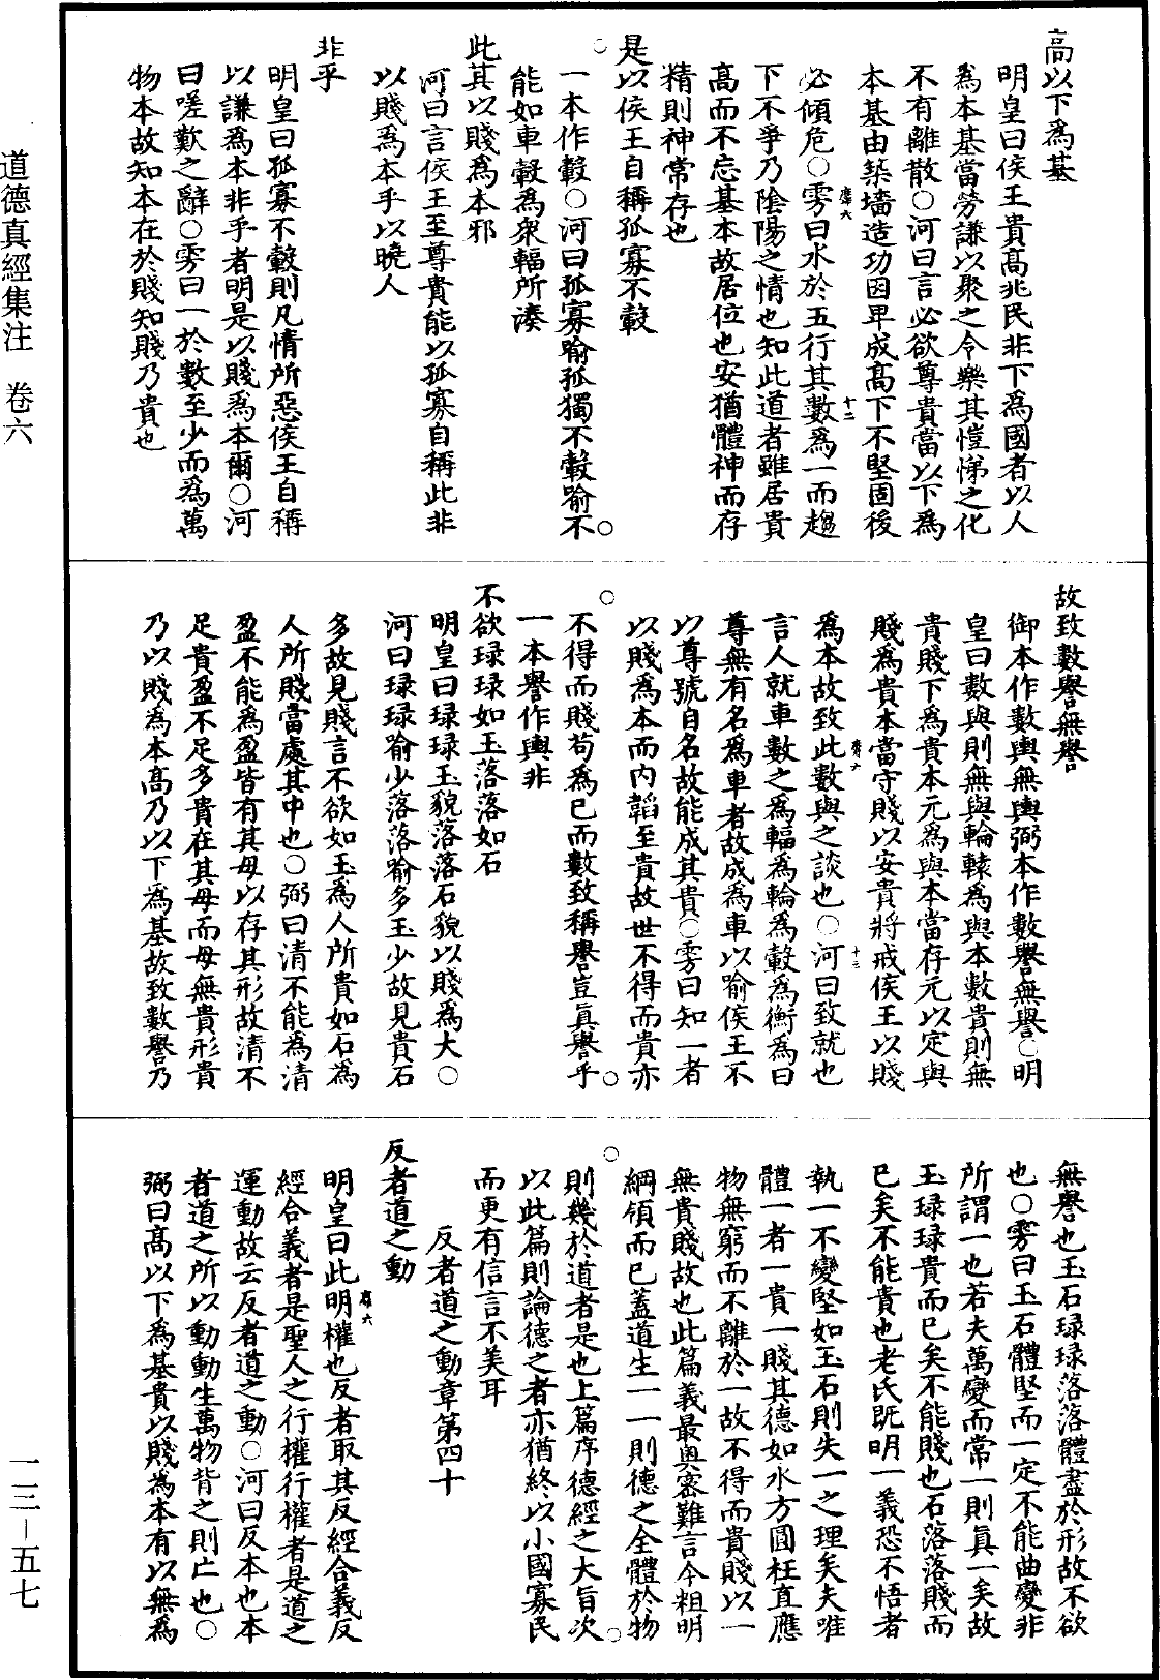 道德真經集注　卷六
一三－五七
高以下爲基
明皇曰侯王貴高兆民非下爲國者以人
爲本基當勞謙以聚之令樂其愷悌之化
不有離散○河曰言必欲尊貴當以下爲
本基由築墻造功因卑成高下不堅固後
必傾危○雱曰水於五行其數爲一而趨
下不爭乃陰陽之情也知此道者雖居貴
高而不忘基本故居位也安猶體神而存
精則神常存也
是以侯王自稱孤寡不轂
一本作轂○河曰孤寡喻孤獨不轂喻不
能如車轂爲衆輻所湊
此其以賤爲本邪
河曰言侯王至尊貴能以孤寡自稱此非
以賤爲本乎以曉人
非乎
明皇曰孤寡不轂則凡情所惡侯王自稱
以謙爲本非乎者明是以賤爲本爾○河
曰嗟歎之辭○雱曰一於數至少而爲萬
物本故知本在於賤知賤乃貴也
故致數譽無譽
御本作數輿無輿弼本作數譽無譽○明
皇曰數輿則無輿輪轅爲輿本數貴則無
貴賤下爲貴本元爲輿本當存元以定輿
賤爲貴本當守賤以安貴將戒侯王以賤
爲本故致此數輿之談也○河曰致就也
言人就車數之爲輻爲輪爲轂爲衡爲曰
尊無有名爲車者故成爲車以喻侯王不
以尊號自名故能成其貴○雱曰知一者
以賤爲本而內韜至貴故世不得而貴亦
不得而賤苟爲已而數致稱譽豈眞譽乎
一本譽作輿非
不欲琭琭如玉落落如石
明皇曰琭琭玉貌落落石貌以賤爲大○
河曰琭琭喻少落落喻多玉少故見貴石
多故見賤言不欲如玉爲人所貴如石爲
人所賤當處其中也○弼曰清不能爲清
盈不能爲盈皆有其母以存其形故清不
足貴盈不足多貴在其母而母無貴形貴
乃以賤爲本高乃以下爲基故致數譽乃
無譽也玉石琭琭落落體盡於形故不欲
也○雱曰玉石體堅而一定不能曲變非
所謂一也若夫萬變而常一則眞一矣故
玉琭琭貴而已矣不能賤也石落落賤而
已矣不能貴也老氏既明一義恐不悟者
執一不變堅如玉石則失一之理矣夫唯
體一者一貴一賤其德如水方圓枉直應
物無窮而不離於一故不得而貴賤以一
無貴賤故也此篇義最奧密難言今粗明
綱領而已蓋道生一一則德之全體於物
則幾於道者是也上篇序德經之大旨次
以此篇則論德之者亦猶終以小國寡民
而更有信言不美耳
反者道之動章第四十
反者道之動
明皇曰此明權也反者取其反經合義反
經合義者是聖人之行權行權者是道之
運動故云反者道之動○河曰反本也本
者道之所以動動生萬物背之則亡也○
弼曰高以下爲基貴以賤爲本有以無爲